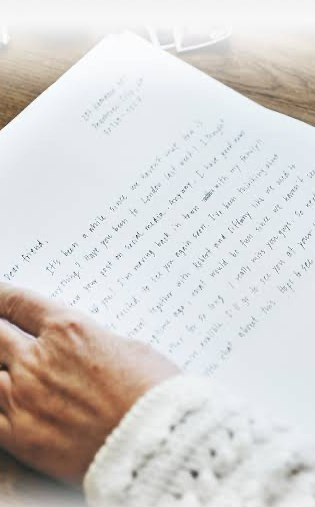 Dear friend,
It's been a while since we haven't met. How is
everything? Have you been to London last week? I thought
saw your post on social media. Anyway, I have good news
you. I'm moving back in town with my family!!
excited to see you again soon. I've been thinking about
travel together with Robert and Tiffany like we used to
long time ago. that would be fun since we haven't se
for so long. I really miss you guys. So
possible. I'll go to see you at your
chat about this. Hope to see